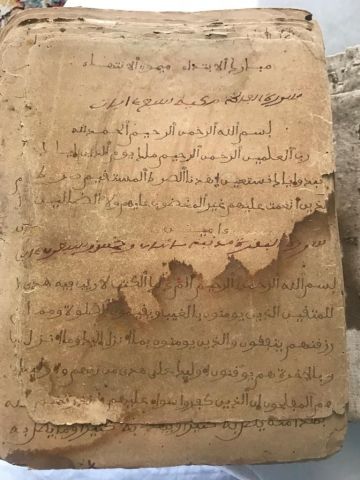 مبارك الابتداء ميمون الانتهاء
سورة الفاتحة مكية سبع ءايات
بسم الله الرحمن الرحيم الحمد لله
رب العلمين الرحمن الرحيم ملك يوم الدين ايا
نعبد واياك نستعين اهدنا الصرط المستقيم صرط
الذين انعمت عليهم غير المغضوب عليهم ولا الضالين
ءامين
سورة البقرة مدنية مائتان
بسم الله الرحمن الرحيم الم ذلك الكتب لا ريب فيه هدى
للمتقين الذين يومنون بالغيب ويقيمون الصلوة ومما
رزقنهم ينفقون والذين يومنون بما انزل اليك وما انزل
وبالاخرة هم يوقنون اوليك على هدى من ربهم
هم المفلحون ان الذين كفروا سواء عليهم
يضل به كثيرا وما يضل به